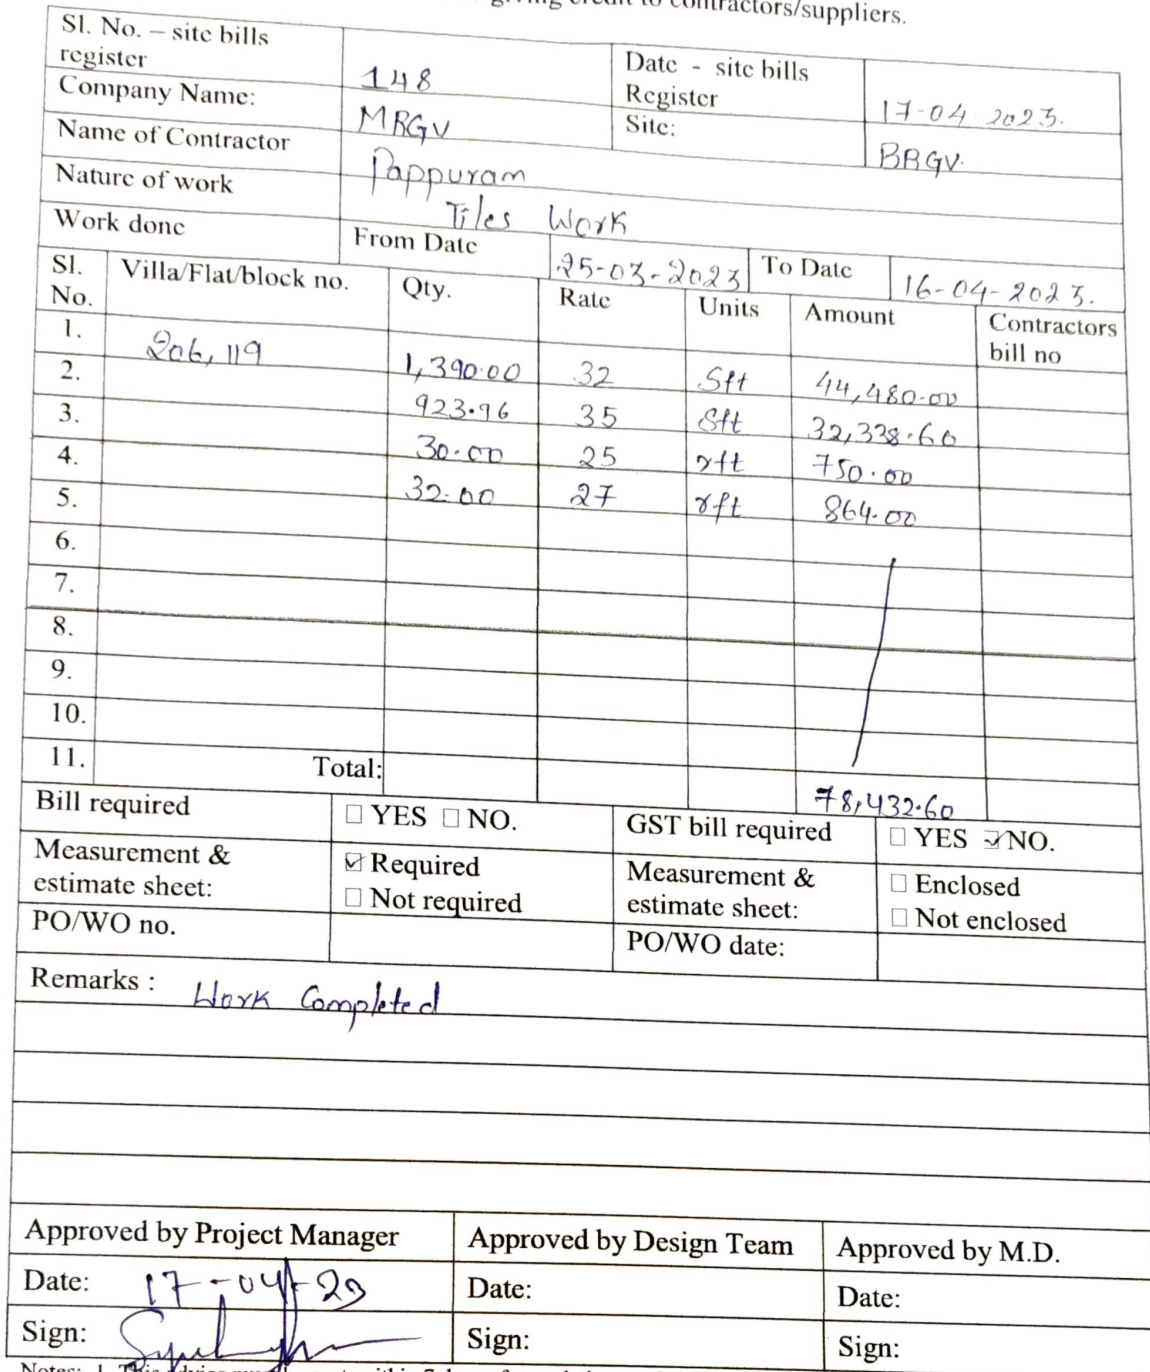 giving credit to contractors/suppliers.
Sl. No. – site bills register 148 Date - site bills Register 17-04-2023.
Company Name: MRGV Site: BRGV.
Name of Contractor Pappuram
Nature of work Tiles Work
Work done From Date 25-03-2023 To Date 16-04-2023.
Sl. No. Villa/Flat/block no. Qty. Rate Units Amount Contractors bill no
1. 206, 119 1,390.00 32 Sft 44,480.00
2. 923.96 35 Sft 32,338.60
3. 30.00 25 rft 750.00
4. 32.00 27 rft 864.00
5.
6.
7.
8.
9.
10.
11. Total: 78,432.60
Bill required □ YES □ NO. GST bill required □ YES ☑ NO.
Measurement & estimate sheet: ☑ Required □ Not required Measurement & estimate sheet: □ Enclosed □ Not enclosed
PO/WO no. PO/WO date:
Remarks : Work Completed
Approved by Project Manager Approved by Design Team Approved by M.D.
Date: 17-04-23 Date: Date:
Sign: Sign: Sign:
Notes: 1. This advice